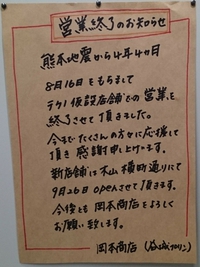 営業終了のお知らせ
熊本地震から4年4ヵ月
8月16日をもちまして
テクノ仮設店舗での営業を
終了させて頂きました。
今までたくさんの方々に応援して
頂き感謝申し上げます。
新店舗は木山横町通りにて
9月26日openさせて頂きます。
今後とも岡本商店をよろしく
お願い致します。
岡本商店 (益城プリン)